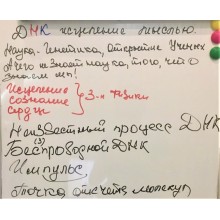 ДНК исцеление мыслью.
Наука - Генетика, открытие Ученых
А чего не знает наука, того, что
знаем мы!
Исцеление
сознание } 3-и физики
сердце
Неизвестный процесс ДНК
(3)
Беспроводной ДНК
Импульс
Точка отсчета молекул